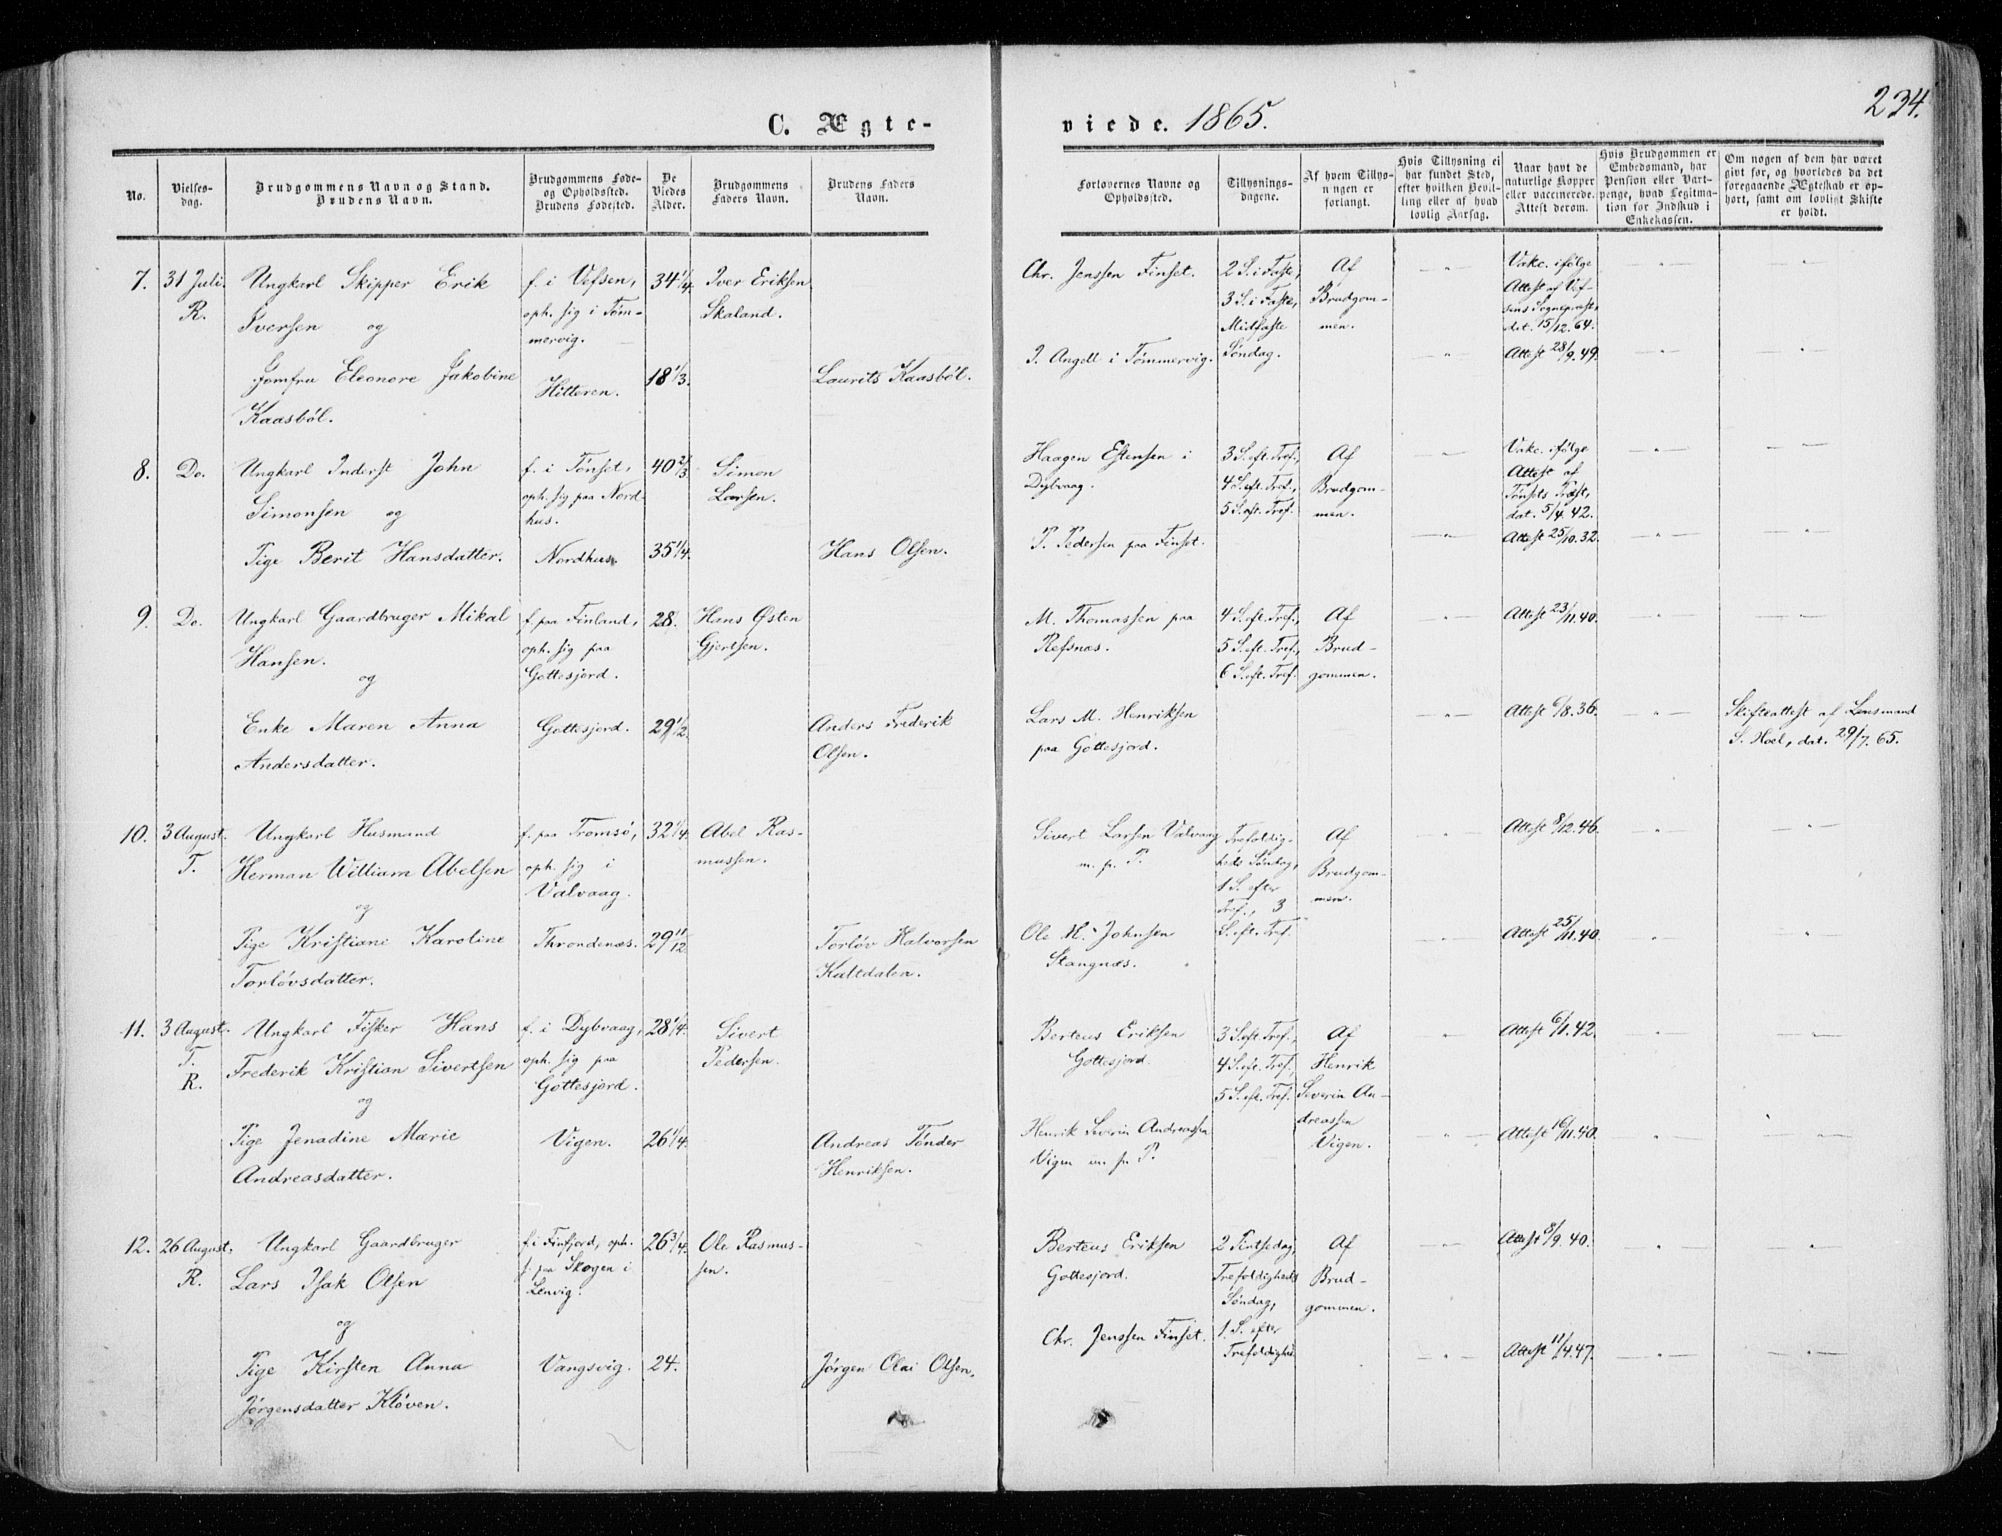 234.
C. Ægte-
viede. 1865.
No.
Vielses-
dag.
Brudgommens Navn og Stand.
Brudens Navn.
Brudgommens Føde-
og Opholdssted.
Brudens Fødested.
De
Viedes
Alder.
Brudgommens
Faders Navn.
Brudens Faders
Navn.
Forlovernes Navne og
Opholdssted.
Tillysnings-
dagene.
Af hvem Tillys-
ningen er
forlangt.
Hvis Tillysning ei
har fundet Sted,
efter hvilken Bevil-
ling eller af hvad
lovlig Aarsag.
Naar havt de
naturlige Kopper
eller vaccinerede.
Attest derom.
Hvis Brudgommen er
Embedsmand, har
Pension eller Vart-
penge, hvad Legitma-
tion for Indskud i
Enkekassen.
Om nogen af dem har været
givt før, og hvorledes da det
foregaaende Ægteskab er op-
hørt, samt om lovligt Skifte
er holdt.
7.
31 Juli.
R.
Ungkarl Skipper Erik
Iversen og
Jomfru Eleonore Jakobine
Kaasbøl.
f. i Vefsen,
oph. sig i Tøm-
mervig.
Hitteren.
34 1/4.
18 1/3.
Iver Eriksen
Skaland.
Laurits Kaasbøl.
Chr. Jenssen Finset.
J. Angell i Tømmervig.
2 S. i Faste,
3 S. i Faste,
Midfaste
Søndag.
Af
Brudgom-
men.
Vakc. ifølge
Attest af Vef-
sens Sognepræst,
dat. 15/12. 64.
Attest 28/9. 49.
8.
Do.
Ungkarl Inderst John
Simonsen og
Pige Berit Hansdatter.
f. i Tønset,
oph. sig paa Nord-
hus.
Nordhus.
40 2/3.
35 1/4.
Simon
Larsen.
Hans Olsen.
Haagen Estensen i
Dybvaag.
P. Pedersen paa Finset.
3 S. eft. Tref.,
4 S. eft. Tref.,
5 S. eft. Tref.
Af
Brudgom-
men.
Vakc. ifølge
Attest af
Tønsets Præst,
dat. 5/4. 42.
Attest 25/10. 32.
9.
Do.
Ungkarl Gaardbruger Mikal
Hansen.
og
Enke Maren Anna
Andersdatter.
f. paa Finland,
oph. sig paa
Gottesjord.
Gottesjord.
28.
29 1/2.
Hans Østen
Gjertsen.
Anders Frederik
Olsen.
M. Thomassen paa
Refsnæs.
Lars M. Henriksen
paa Gottesjord.
4 S. eft. Tref.,
5 S. eft. Tref.,
6 S. eft. Tref.
Af
Brud-
gommen.
Attest 23/11. 40.
Attest 6/8. 36.
Skifteattest af Lensmand
S. Hoel, dat. 29/7. 65.
10.
3 August.
T.
Ungkarl Husmand
Herman William Abelsen
og
Pige Kristiane Karoline
Torløvsdatter.
f. paa Tromsø,
oph. sig i
Valvaag.
Throndenæs.
32 1/4.
29 11/12.
Abel Ras-
mussen.
Torløv Halvorsen
Kaltdalen.
Sivert Larsen Valvaag
m. p. P.
Ole M. Johnsen
Stangnæs.
Trefoldig-
heds Søndag,
1 S. efter
Tref., 3
S. eft. Tref.
Af
Brudgom-
men.
Attest 8/12. 46.
Attest 25/11. 40.
11.
3 August.
T.
R.
Ungkarl Fisker Hans
Frederik Kristian Sivertsen
og
Pige Jenadine Marie
Andreasdatter.
f. i Dybvaag,
oph. sig paa
Gottesjord.
Vigen.
28 1/4.
26 1/4.
Sivert
Pedersen.
Andreas Tønder
Henriksen.
Berteus Eriksen
Gottesjord.
Henrik Severin Andreassen
Vigen m. p. P.
3 S. eft. Tref.,
4 S. eft. Tref.,
5 S. eft. Tref.
Af
Henrik
Severin An-
dreassen
Vigen.
Attest 6/11. 42.
Attest 16/11. 40.
12.
26 August.
R.
Ungkarl Gaardbruger
Lars Isak Olsen
og
Pige Kirsten Anna
Jørgensdatter Kløven.
f. i Finfjord, oph.
s. paa Skogen i
Lenvig.
Vangsvig.
26 3/4.
24.
Ole Rasmus-
sen.
Jørgen Olai Olsen.
Berteus Eriksen
Gottesjord.
Chr. Jenssen Finset.
2 Pintsedag
Trefoldigheds
Søndag,
1. S. efter
Trefoldighd.
Af
Brud-
gommen.
Attest 8/9. 40.
Attest 11/4. 47.